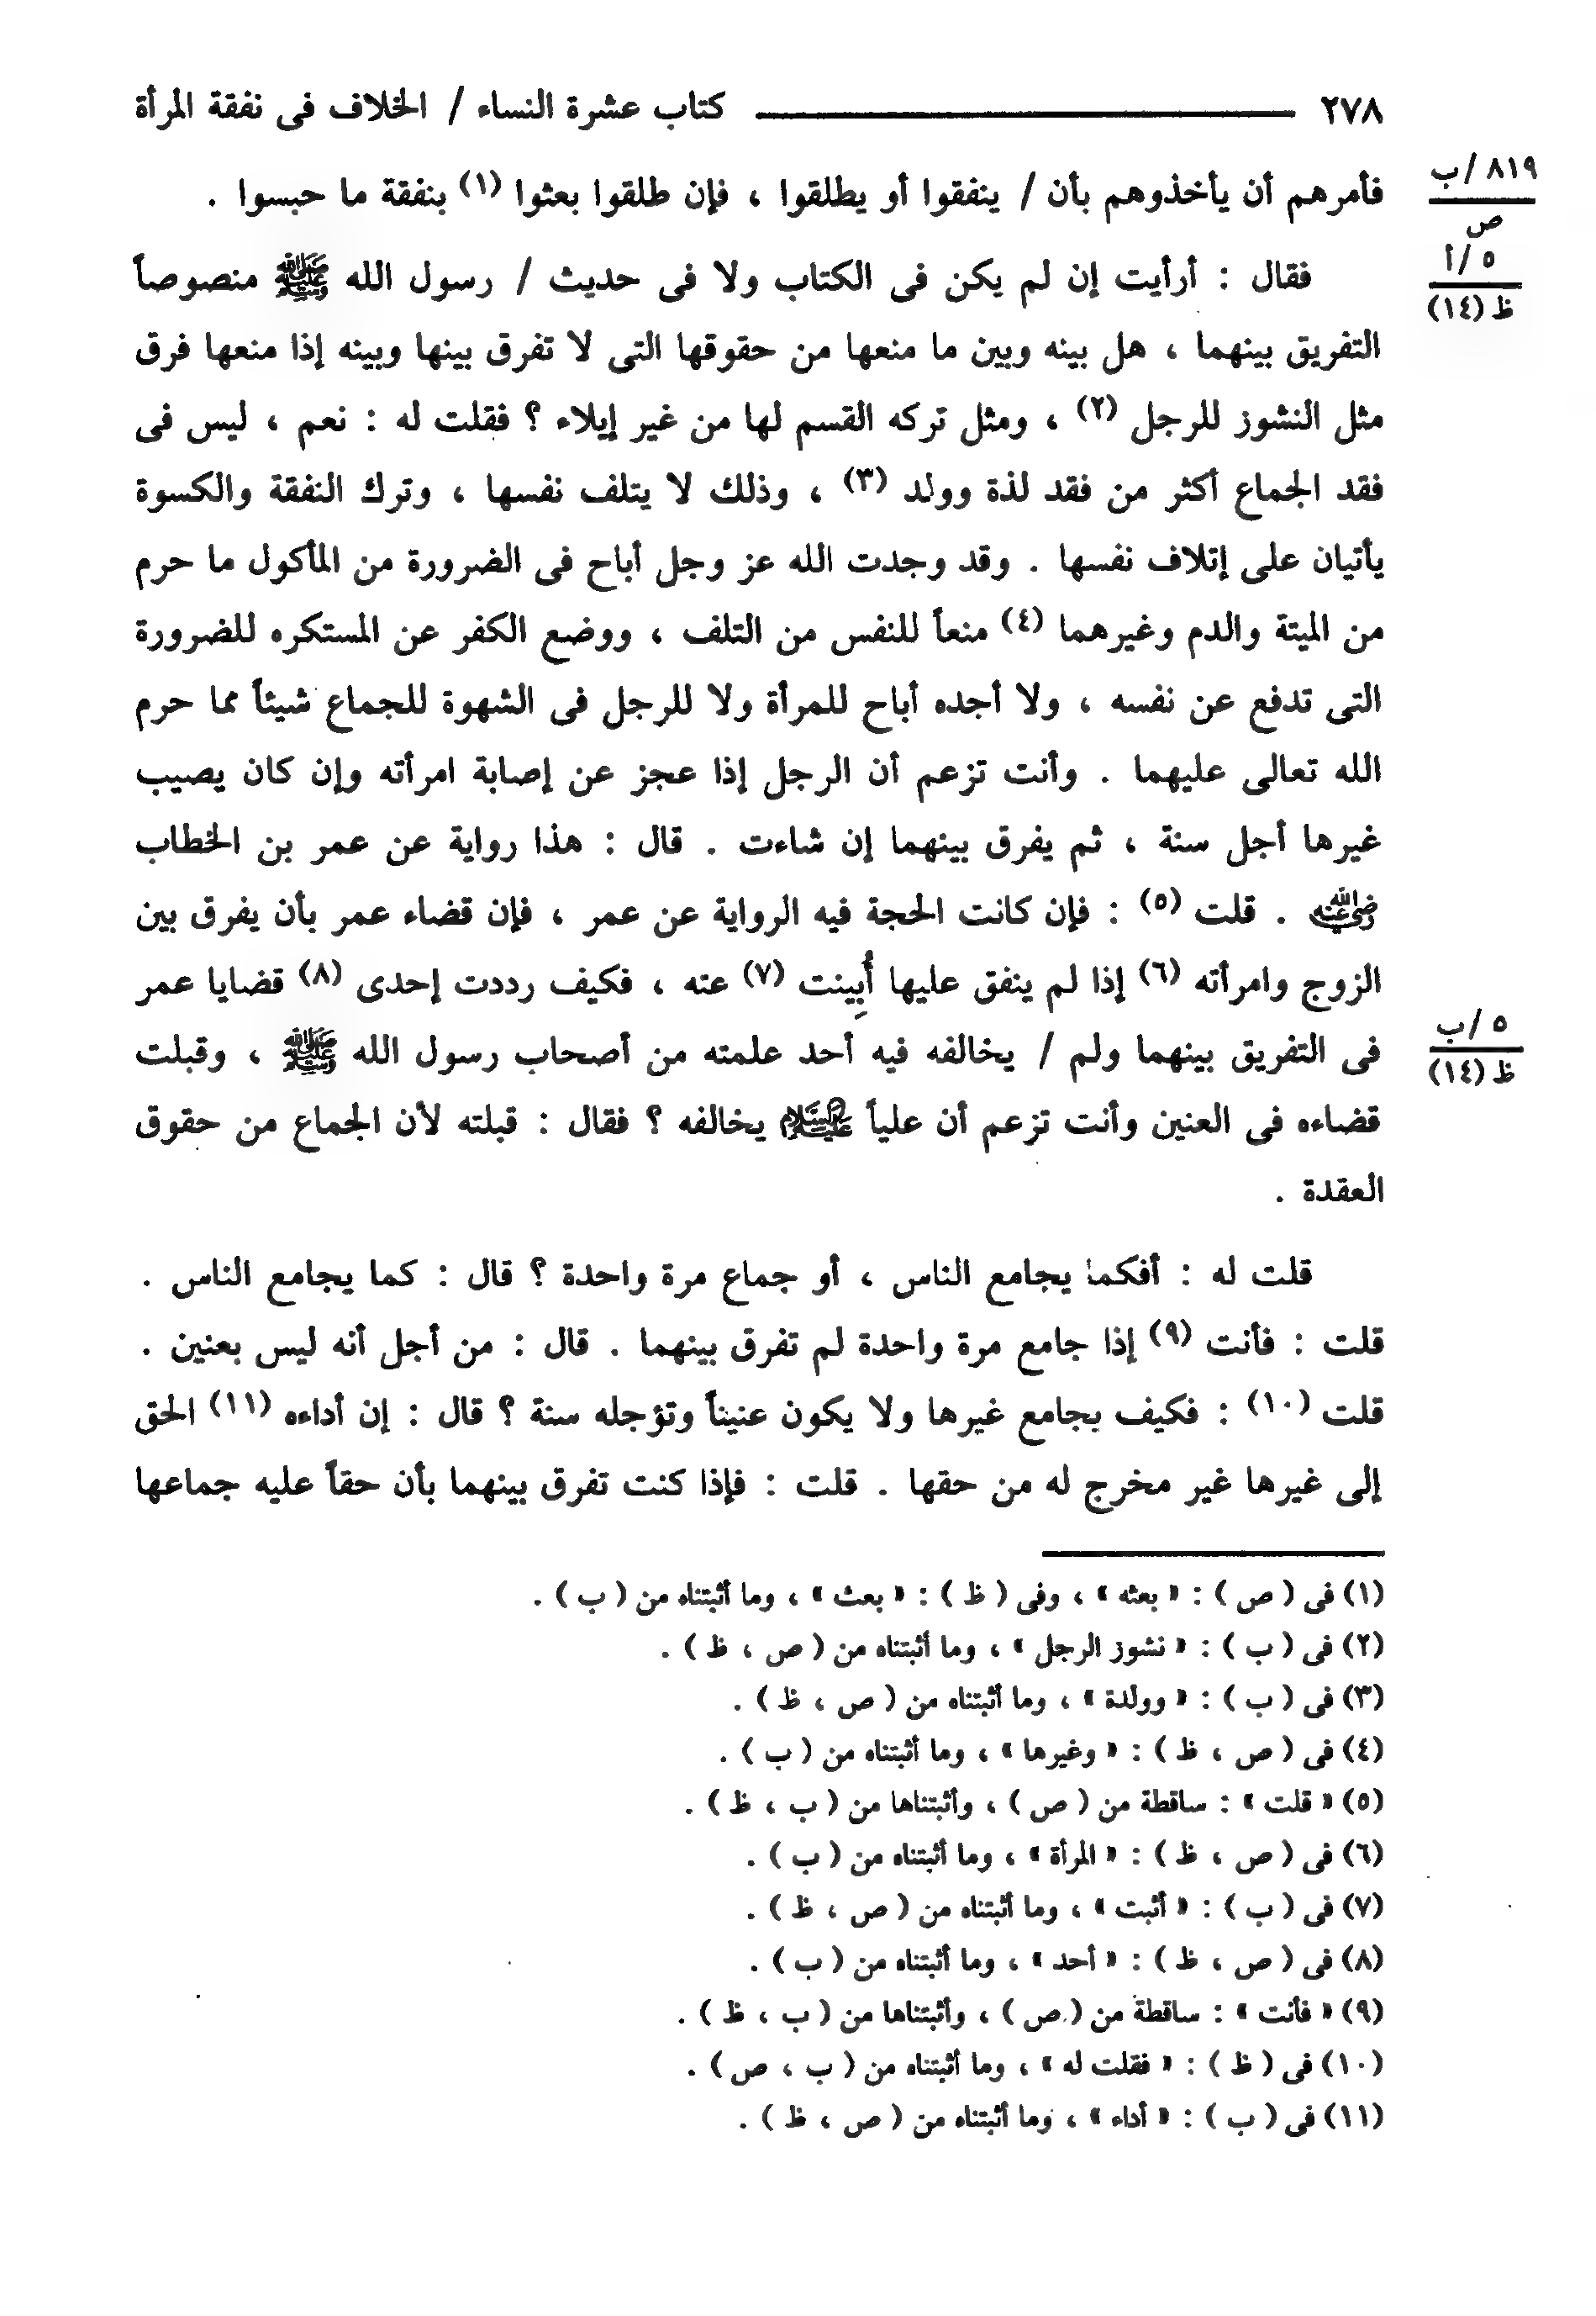 ٢٧٨ ـــــــــــــ كتاب عشرة النساء / الخلاف فى نفقة المرأة
٨١٩ /ب
ص
فأمرهم أن يأخذوهم بأن / ينفقوا أو يطلقوا ، فإن طلقوا بعثوا (١) بنفقة ما حبسوا .
٥ /أ
ظ (١٤)
فقال : أرأيت إن لم يكن فى الكتاب ولا فى حديث / رسول الله ﷺ منصوصاً
التفريق بينهما ، هل بينه وبين ما منعها من حقوقها التى لا تفرق بينها وبينه إذا منعها فرق
مثل النشوز للرجل (٢) ، ومثل تركه القسم لها من غير إيلاء ؟ فقلت له : نعم ، ليس فى
فقد الجماع أكثر من فقد لذة وولد (٣) ، وذلك لا يتلف نفسها ، وترك النفقة والكسوة
يأتيان على إتلاف نفسها . وقد وجدت الله عز وجل أباح فى الضرورة من المأكول ما حرم
من الميتة والدم وغيرهما (٤) منعاً للنفس من التلف ، ووضع الكفر عن المستكره للضرورة
التى تدفع عن نفسه ، ولا أجده أباح للمرأة ولا للرجل فى الشهوة للجماع شيئاً مما حرم
الله تعالى عليهما . وأنت تزعم أن الرجل إذا عجز عن إصابة امرأته وإن كان يصيب
غيرها أجل سنة ، ثم يفرق بينهما إن شاءت . قال : هذا رواية عن عمر بن الخطاب
رضي الله عنه . قلت (٥) : فإن كانت الحجة فيه الرواية عن عمر ، فإن قضاء عمر بأن يفرق بين
الزوج وامرأته (٦) إذا لم ينفق عليها أُبِينت (٧) عته ، فكيف رددت إحدى (٨) قضايا عمر
فى التفريق بينهما ولم / يخالفه فيه أحد علمته من أصحاب رسول الله ﷺ ، وقبلت
٥ /ب
ظ (١٤)
قضاءه فى العنين وأنت تزعم أن علياً عليه السلام يخالفه ؟ فقال : قبلته لأن الجماع من حقوق
العقدة .
قلت له : أفكما يجامع الناس ، أو جماع مرة واحدة ؟ قال : كما يجامع الناس .
قلت : فأنت (٩) إذا جامع مرة واحدة لم تفرق بينهما . قال : من أجل أنه ليس بعنين .
قلت (١٠) : فكيف يجامع غيرها ولا يكون عنيناً وتؤجله سنة ؟ قال : إن أداءه (١١) الحق
إلى غيرها غير مخرج له من حقها . قلت : فإذا كنت تفرق بينهما بأن حقاً عليه جماعها
(١) فى ( ص ) : « بعثه » ، وفى ( ظ ) : « بعث » ، وما أثبتناه من ( ب ) .
(٢) فى ( ب ) : « نشوز الرجل » ، وما أثبتناه من ( ص ، ظ ) .
(٣) فى ( ب ) : « وولدة » ، وما أثبتناه من ( ص ، ظ ) .
(٤) فى ( ص ، ظ ) : « وغيرها » ، وما أثبتناه من ( ب ) .
(٥) « قلت » : ساقطة من ( ص ) ، وأثبتناها من ( ب ، ظ ) .
(٦) فى ( ص ، ظ ) : « المرأة » ، وما أثبتناه من ( ب ) .
(٧) فى ( ب ) : « أثبت » ، وما أثبتناه من ( ص ، ظ ) .
(٨) فى ( ص ، ظ ) : « أحد » ، وما أثبتناه من ( ب ) .
(٩) « فأنت » : ساقطة من ( ص ) ، وأثبتناها من ( ب ، ظ ) .
(١٠) فى ( ظ ) : « فقلت له » ، وما أثبتناه من ( ب ، ص ) .
(١١) فى ( ب ) : « أداء » ، وما أثبتناه من ( ص ، ظ ) .